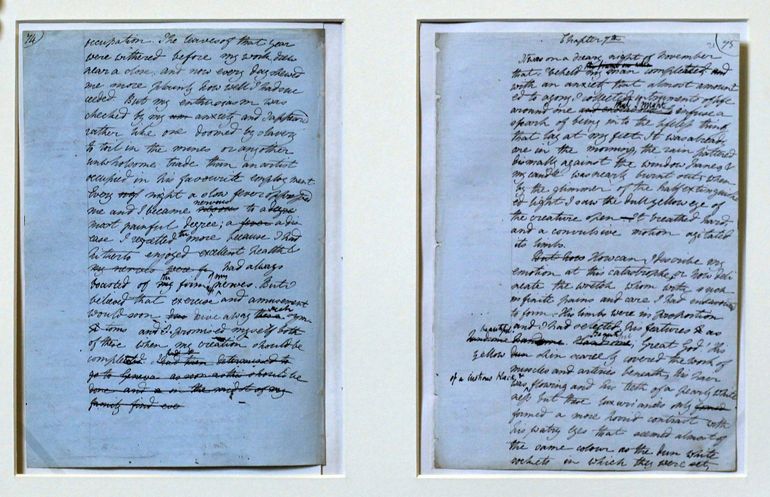 74
occupation. The leaves of that year
were withered before my work drew
near a close, and now every day shewed
me more plainly how well I had suc
ceeded. But my enthusiasm was
checked by my anxiety and I appeared
rather like one doomed by slavery
to toil in the mines or any other
unwholsome trade than an artist
occupied in his favourite employment
Every night a slow fever oppressed
me and I became nervous to a
most painful degree; a dis
ease I regretted the more because I had
hitherto enjoyed excellent health &
had always
boasted of the firmness of my nerves. But I
beleived that exercise and amusement
would soon drive away such symp
toms and I promised myself both
of these when my creation should be
completed. I had then determined to
go to Geneva as soon as this should be
done and in the midst of my
family find
75
Chapter 7th
It was on a dreary night of November
that I beheld my man completed and
with an anxiety that almost amount
ed to agony I collected instruments of life
around me that I might infuse a
spark of being into the lifeless thing
that lay at my feet. It was already
one in the morning, the rain pattered
dismally against the window panes &
my candle was nearly burnt out, when
by the glimmer of the half extinguish
ed light I saw the dull yellow eye of
the creature open. It breathed hard
and a convulsive motion agitated
its limbs.
But how How can I describe my
emotion at this catastrophe, or how deli
neate the wretch whom with such
infinite pains and care I had endeavoured
to form. His limbs were in proportion
and I had selected his features as
beautiful
handsome. Great God! His
yellow dun skin scarcely covered the work of
muscles and arteries beneath; his hair
of a lustrous black &
was flowing and his teeth of a pearly white
ness but these luxuriances only
formed a more horrid contrast with
his watry eyes that seemed almost of
the same colour as the dun white
sockets in which they were set,